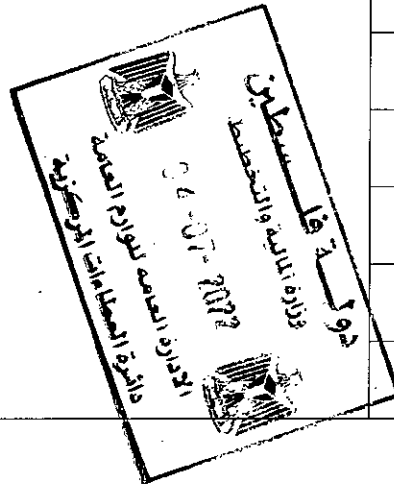 دولة فلسطين
وزارة المالية والتخطيط
04-07-2022
الإدارة العامة للوازم العامة
دائرة العطاءات المركزية